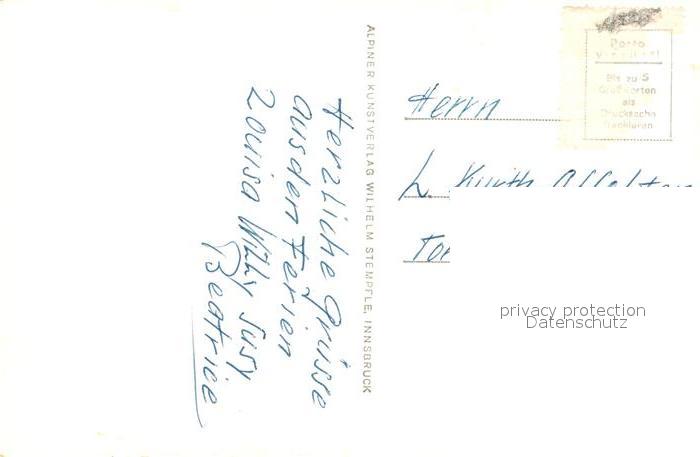 Herzliche Grüsse
aus den Ferien
Louisa Willy Susy
Beatrice
ALPINER KUNSTVERLAG WILHELM STEMPFLE, INNSBRUCK
Porto
Bis zu 5
Grußworten
als
Drucksache
frankieren
Herrn
L.
privacy protection
Datenschutz